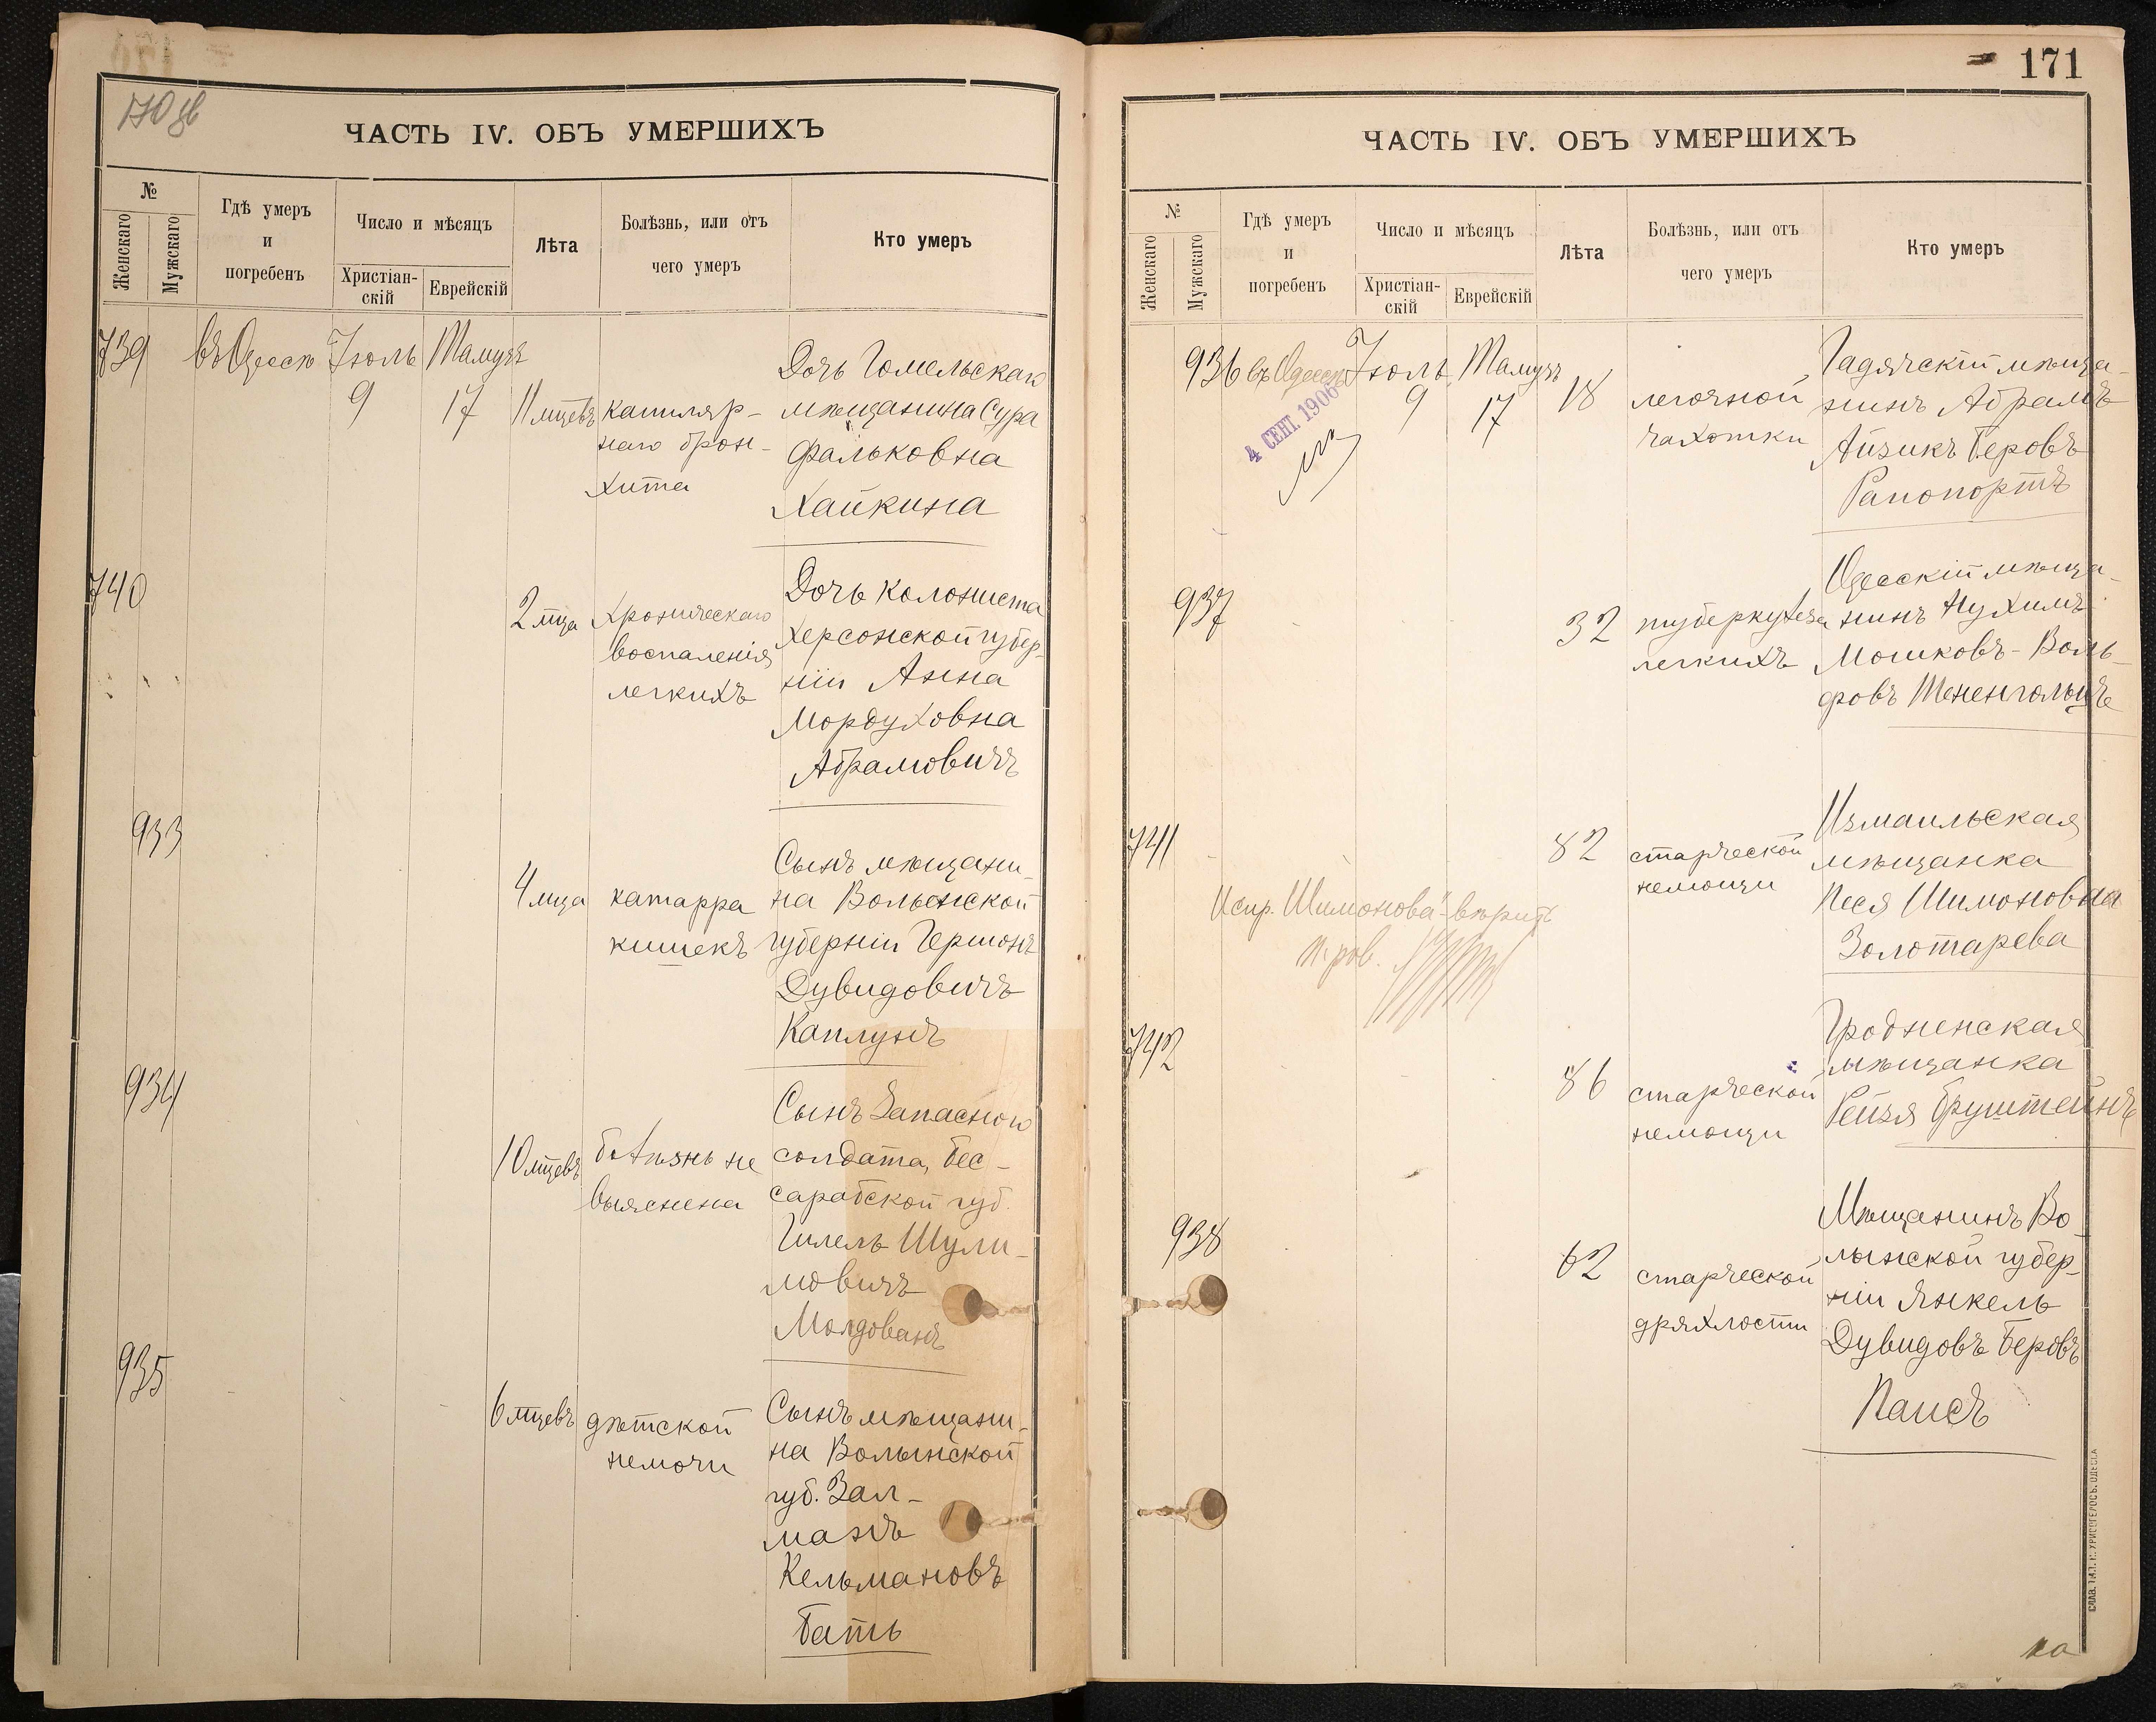 170 об
ЧАСТЬ IV. ОБЪ УМЕРШИХЪ
№
Женскаго
Мужскаго
Гдѣ умеръ
и
погребенъ
Число и мѣсяцъ
Христіан-
скій
Еврейскій
Лѣта
Болѣзнь, или отъ
чего умеръ
Кто умеръ
739
въ Одессѣ
Іюль
9
Тамузъ
17
11 мцевъ
капиляр-
наго брон-
хита
Дочь Гомельскаго
мѣщанина Сура
Фальковна
Хайкина
740
2 мца
Хроническаго
воспаленія
легкихъ
Дочь колониста
Херсонской губер-
ніи Анна
Мордуховна
Абрамовичъ
933
4 мца
катарра
кишекъ
Сынъ мѣщани-
на Волынской
губерніи Гершонъ
Дувидовичъ
Каплунъ
934
10 мцевъ
болѣзнь не
выяснена
Сынъ Запасного
солдата, Бес-
сарабской губ.
Гилель Шули-
мовичъ
Молдованъ
935
6 мцевъ
дѣтской
немочи
Сынъ мѣщани-
на Волынской
губ. Зал-
манъ
Кельмановъ
Бать
171
ЧАСТЬ IV. ОБЪ УМЕРШИХЪ
№
Женскаго
Мужскаго
Гдѣ умеръ
и
погребенъ
Число и мѣсяцъ
Христіан-
скій
Еврейскій
Лѣта
Болѣзнь, или отъ
чего умеръ
Кто умеръ
936
въ Одессѣ
4 СЕНТ. 1906
Іюль
9
Тамузъ
17
18
легочной
чахотки
Гадячскій мѣща-
нинъ Абрамъ
Айзикъ Беровъ
Рапопортъ
937
32
туберкулеза
легкихъ
Одесскій мѣща-
нинъ Нухимъ
Мошковъ-Воль-
фовъ Тененгольцъ
741
82
старческой
немощи
Измаильская
мѣщанка
Песя Шимоновна
Золотарева
Испр. "Шимонова" вѣрить
742
86
старческой
немощи
Гродненская
мѣщанка
Рейзя Бруштейнъ
938
62
старческой
дряхлости
Мѣщанинъ Во-
лынской губер-
ніи Янкель
Дувидовъ Беровъ
Паисъ